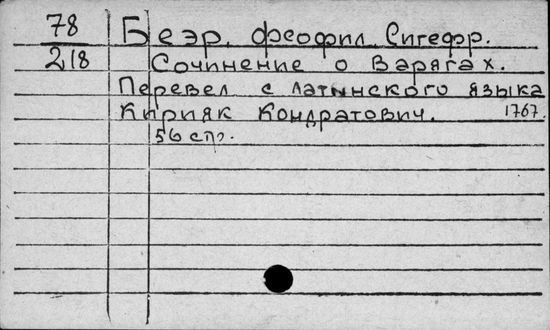 78 Беэр, Феофил Сигефр.
218 Сочинение о Варягах.
Перевел с латынского языка
Кирияк Кондратович. 1767.
56 стр.